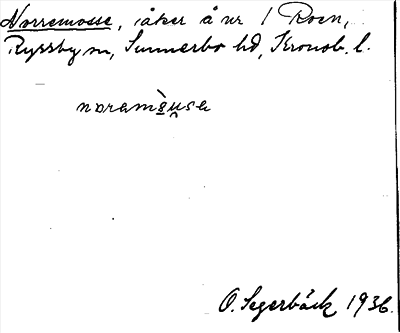 Norremosse, åker å nr 1 Roen,
Ryssby sn, Sunnerbo hd, Kronob. l.
noramὰu̯sa
O. Segerbäck 1936.